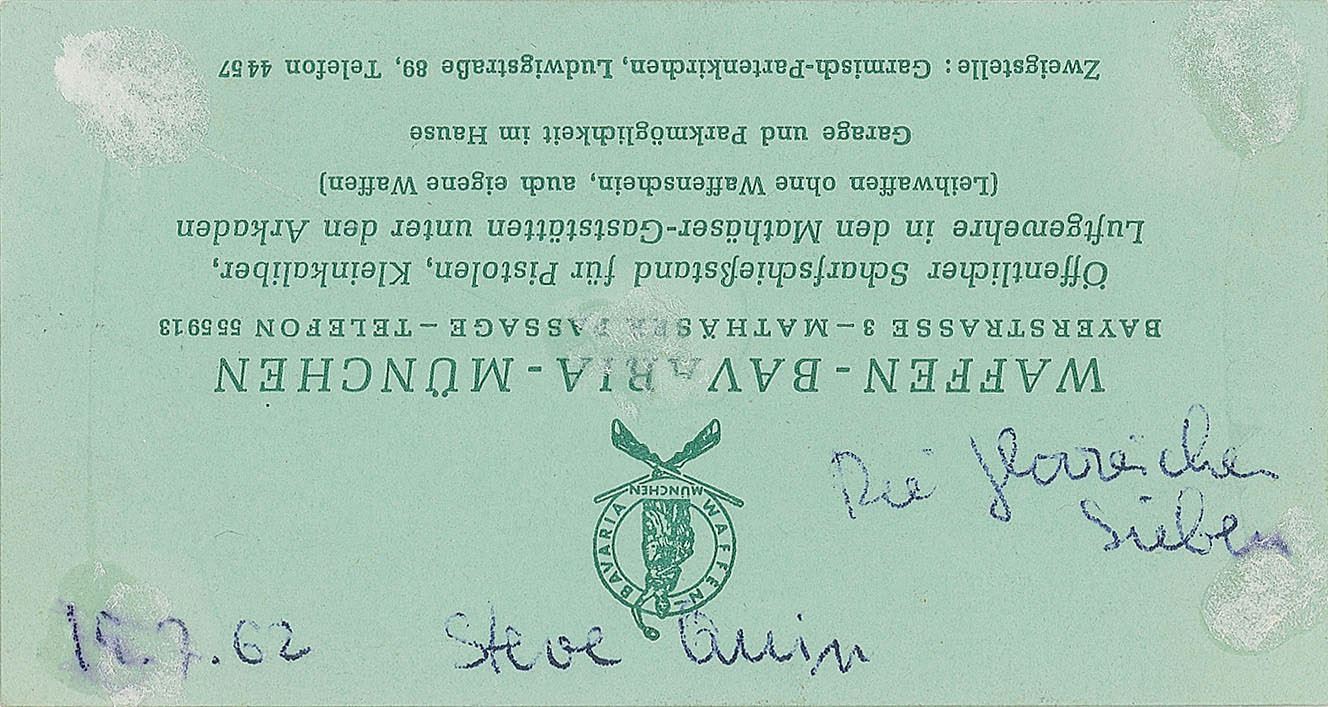 Die glorreichen
Sieben
15.7.62 Steve Quin
WAFFEN-BAVARIA-MÜNCHEN
BAYERSTRASSE 3 – MATHÄSER PASSAGE – TELEFON 555913
Öffentlicher Scharfschießstand für Pistolen, Kleinkaliber,
Luftgewehre in den Mathäser-Gaststätten unter den Arkaden
(Leihwaffen ohne Waffenschein, auch eigene Waffen)
Garage und Parkmöglichkeit im Hause
Zweigstelle: Garmisch-Partenkirchen, Ludwigstraße 89, Telefon 4457
WAFFEN-BAVARIA
MÜNCHEN